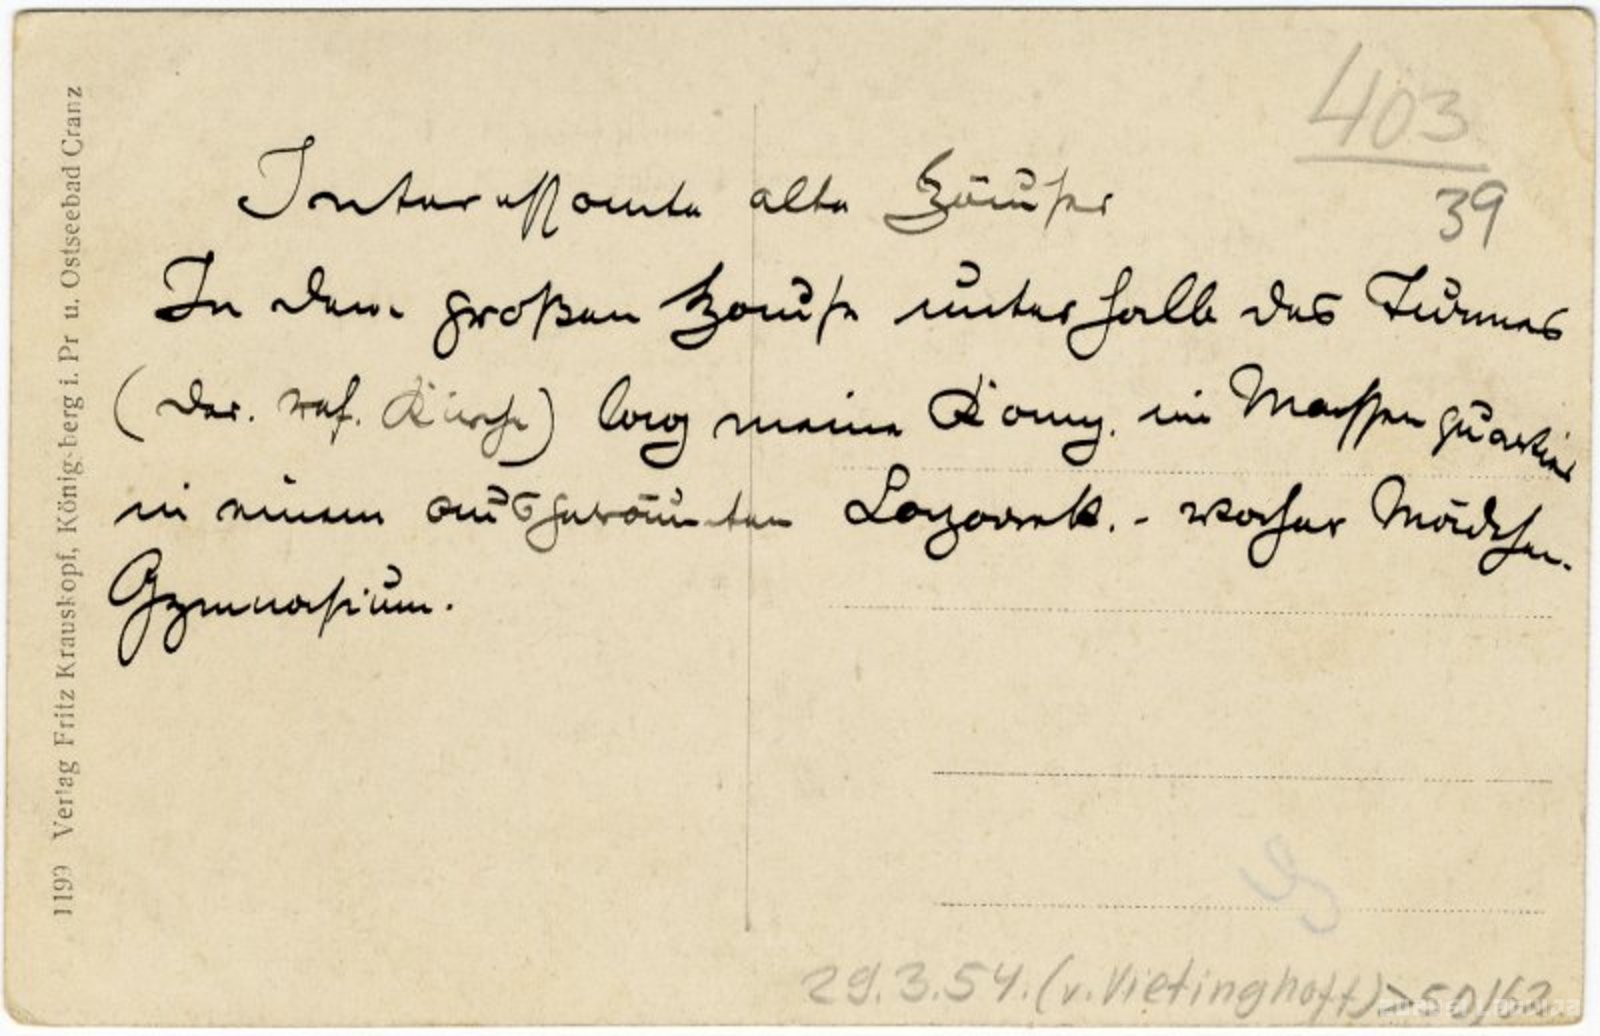 403
39
Interessante alte Häuser
In dem großen Hause unterhalb des Turmes
(der ref. Kirche) lag meine Komp. im Massenquartier
in einem ausgeräumten Lazarett. - vorher Mädchen-
Gymnasium.
1199 Verlag Fritz Krauskopf, Königsberg i. Pr u. Ostseebad Cranz
29.3.54. (v. Vietinghoff)